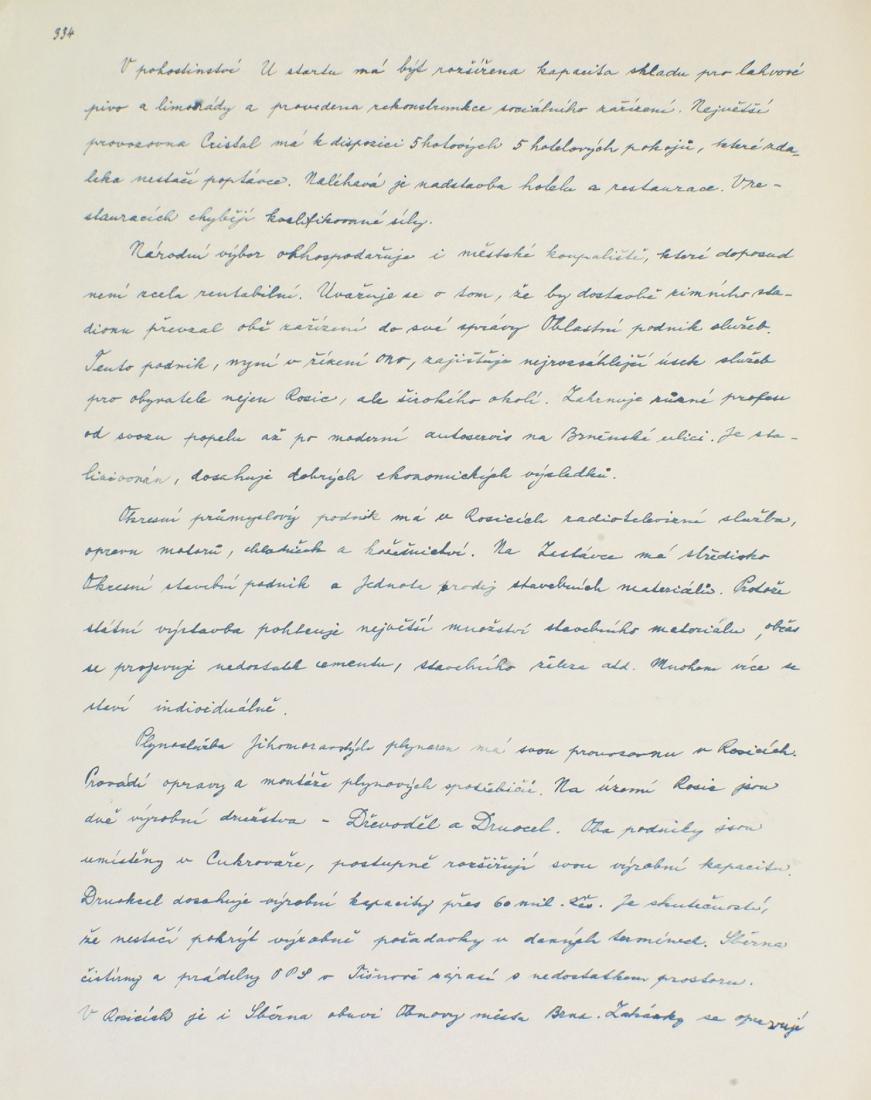 334
V pohostinství U startu má být rozšířena kapacita skladu pro lahvové
pivo a limonády a provedena rekonstrunkce sociálního zařízení. Největší
provozovna Cristal má k dispozici 5 hotových 5 hotelových pokojů, které zda-
leka nestačí poptávce. Naléhavá je nadstavba hotelu a restaurace. V re-
stauracích chybějí kvalifikované síly.
Národní výbor obhospodařuje i městské koupaliště, které doposud
není zcela rentabilní. Uvažuje se o tom, že by dostavbě zimního sta-
dionu převzal obě zařízení do své správy Oblastní podnik služeb.
Tento podnik, nyní v řízení ONV, zajišťuje nejrozsáhlejší úsek služeb
pro obyvatele nejen Rosic, ale širokého okolí. Zahrnuje různé profese
od svozu popelu až po moderní autoservis na Brněnské ulici. Je sta-
lizován, dosahuje dobrých ekonomických výsledků.
Okresní průmyslový podnik má v Rosicích radiotelevizné službu,
opravu motorů, chladniček a kožešnictví. Na Zastávce má středisko
Okresní stavební podnik a Jednota prodej stavebních materiálů. Protože
státní výstavba pohlcuje největší množství stavebního materiálu, občas
se projevuje nedostatek cementu, stavebního železa atd. Mnohem více se
staví individuálně.
Plynoslužba Jihomoravských plynaren má svou provozovnu v Rosicích.
Provádí opravy a montáže plynových spotřebičů. Na území Rosic jsou
dvě výrobní družstva - Dřevoděl a Druocel. Oba podniky jsou
umístěny v Cukrovaře, postupně rozšiřují svou výrobní kapacitu.
Druokcel dosahuje výrobní kapacity přes 60 mil. Kčs. Je skutečností,
že nestačí pokrýt výrobně požadavky v daných termínech. Sběrna
čistírny a prádelny OPS v Tišnově zápasí s nedostatkem prostoru.
V Rosicích je i Sběrna obuvi Obnovy města Brna. Zakázky se opravují